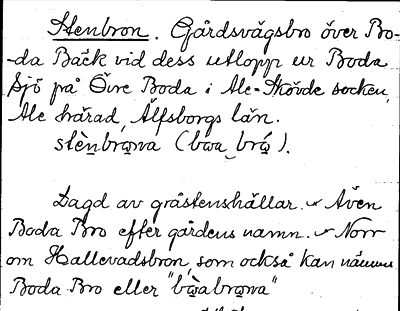 Stenbron. Gårdsvägsbro över Bo-
-da Bäck vid dess utlopp ur Boda
Sjö på Övre Boda i Ale-Skövde socken,
Ale härad, Älfsborgs län.
stèn̲bro̲na (boa bro̲).
Lagd av gråstenshällar. ~ Även
Boda Bro efter gårdens namn. ~ Norr
om Hallevadsbron, som också kan nämnas
Boda Bro eller "bò̲abro̲na"